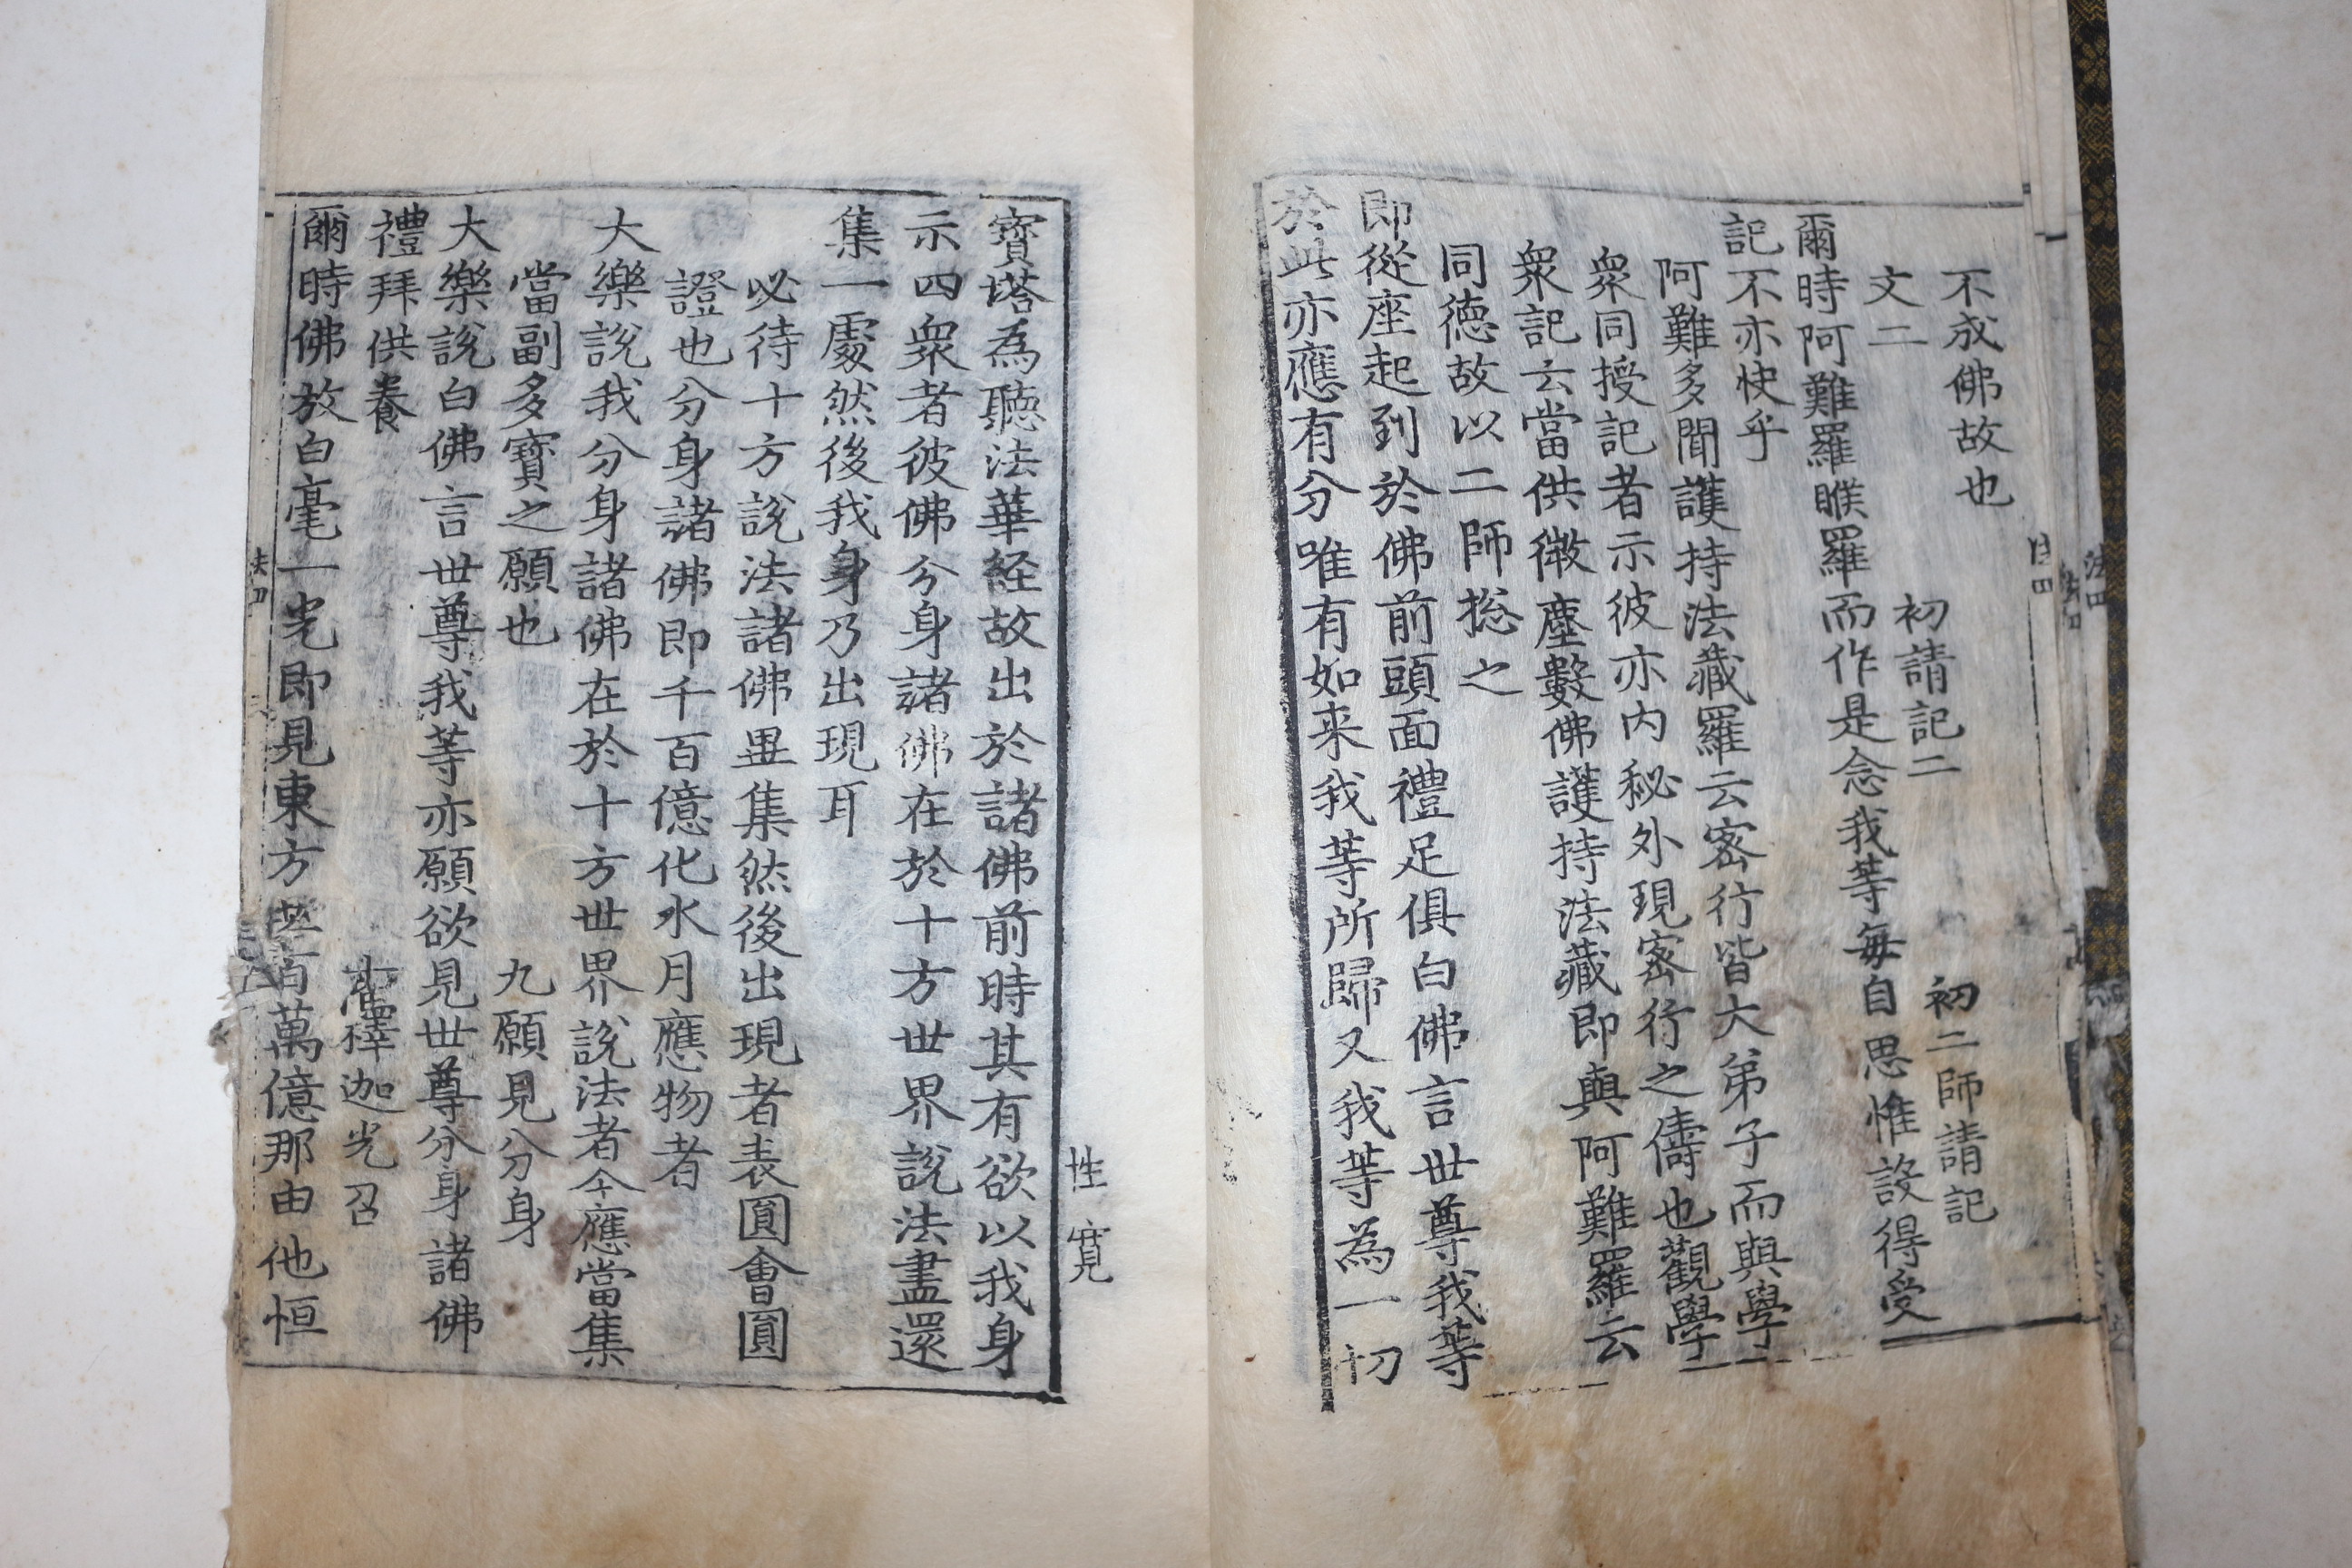 不成佛故也
文二　初請記二　初二師請記
爾時阿難羅睺羅而作是念我等每自思惟設得受
記不亦快乎
阿難多聞護持法藏羅云密行皆大弟子而與學
衆同授記者示彼亦內秘外現密行之儔也觀學
衆記云當供微塵數佛護持法藏即與阿難羅云
同德故以二師捴之
即從座起到於佛前頭面禮足俱白佛言世尊我等
於此亦應有分唯有如来我等所歸又我等為一切
性寬
寶塔為聽法華經故出於諸佛前時其有欲以我身
示四衆者彼佛分身諸佛在於十方世界說法盡還
集一處然後我身乃出現耳
必待十方說法諸佛畢集然後出現者表圓會圓
證也分身諸佛即千百億化水月應物者
大樂說我分身諸佛在於十方世界說法者今應當集
當副多寶之願也　九願見分身
大樂說白佛言世尊我等亦願欲見世尊分身諸佛
禮拜供養　釋迦光召
爾時佛放白毫一光即見東方百萬億那由他恒